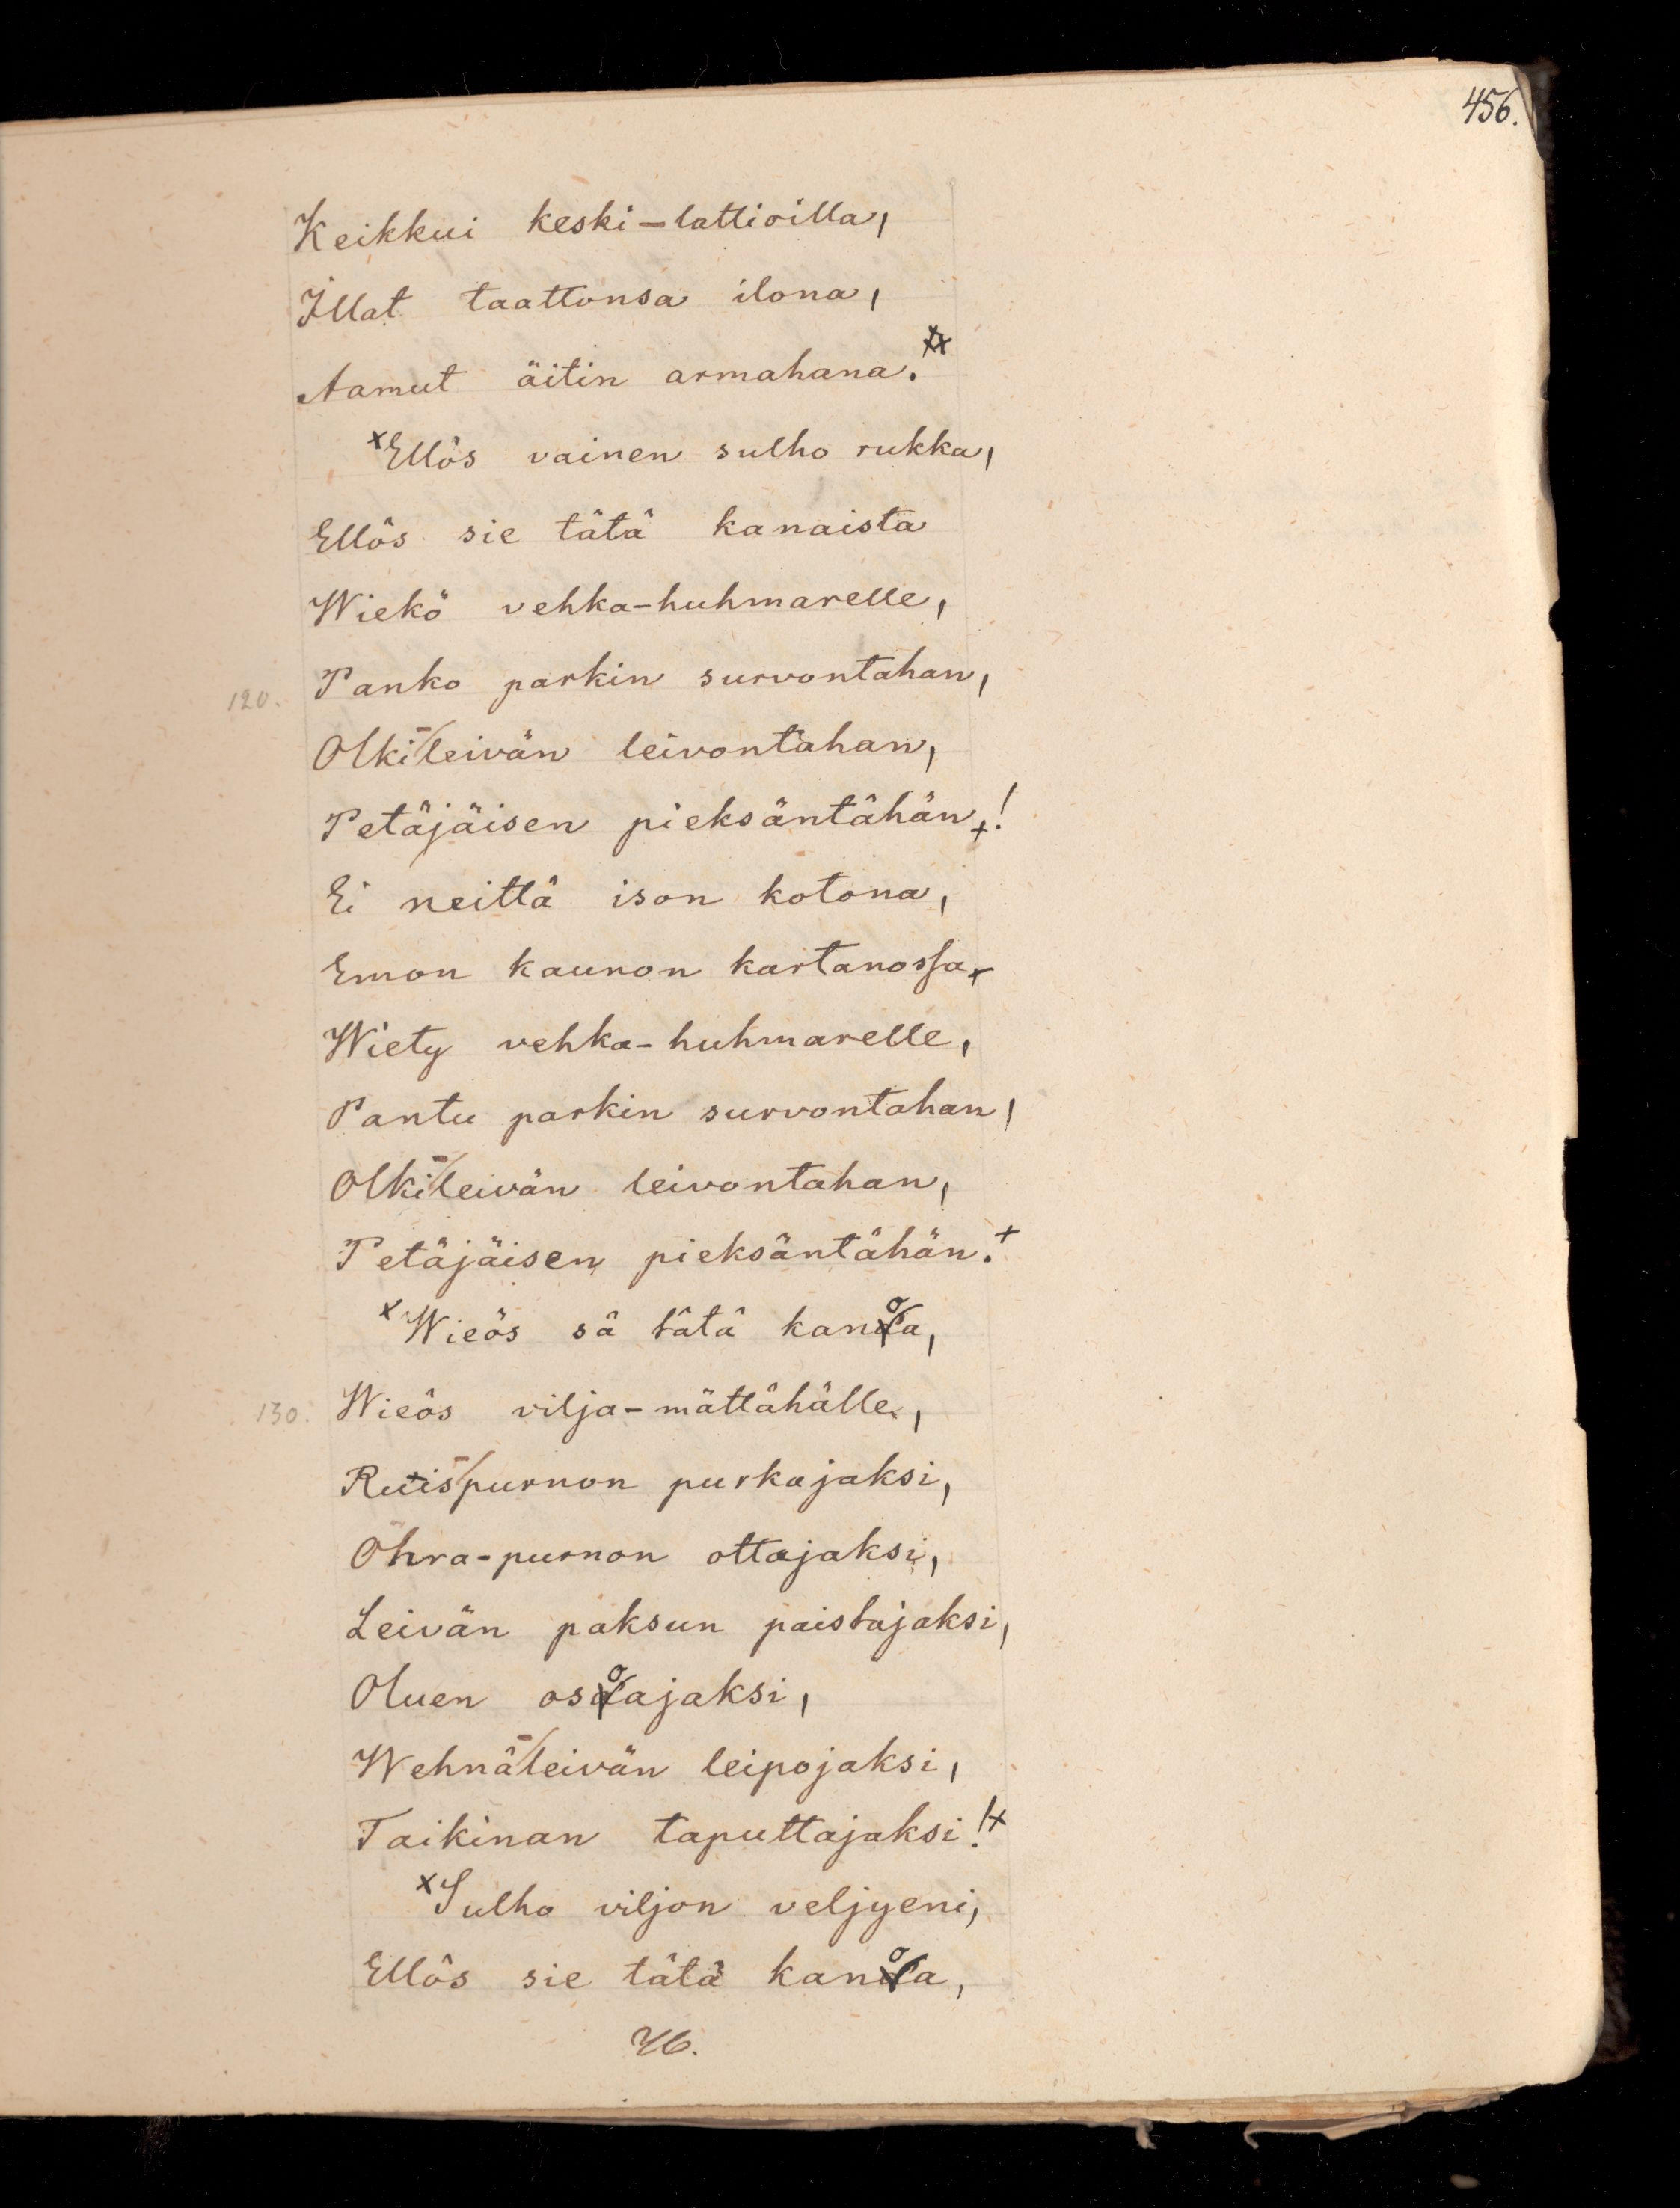 456.
Keikkui keski-lattioilla,
Illat taattonsa ilona,
Aamut äitin armahana. xx
x Ellös vainen sulho rukka,
Ellös sie tätä kanaista
Wiekö vehka-huhmarelle,
120. Panko parkin survontahan,
Olki-leivän leivontahan,
Petäjäisen pieksäntähän+!
Ei neittä ison kotona,
Emon kaunon kartanossa x
Wiety vehka-huhmarelle,
Pantu parkin survontahan,
Olki-leivän leivontahan,
Petäjäisen pieksäntähän. +
x Wieös sä tätä kanoa,
130. Wieös vilja-mättähälle,
Ruis-purnon purkajaksi,
Ohra-purnon ottajaksi,
Leivän paksun paistajaksi,
Oluen osoajaksi,
Wehnä-leivän leipojaksi,
Taikinan taputtajaksi! x
x Sulho viljon veljyeni,
Ellös sie tätä kanoa,
46.